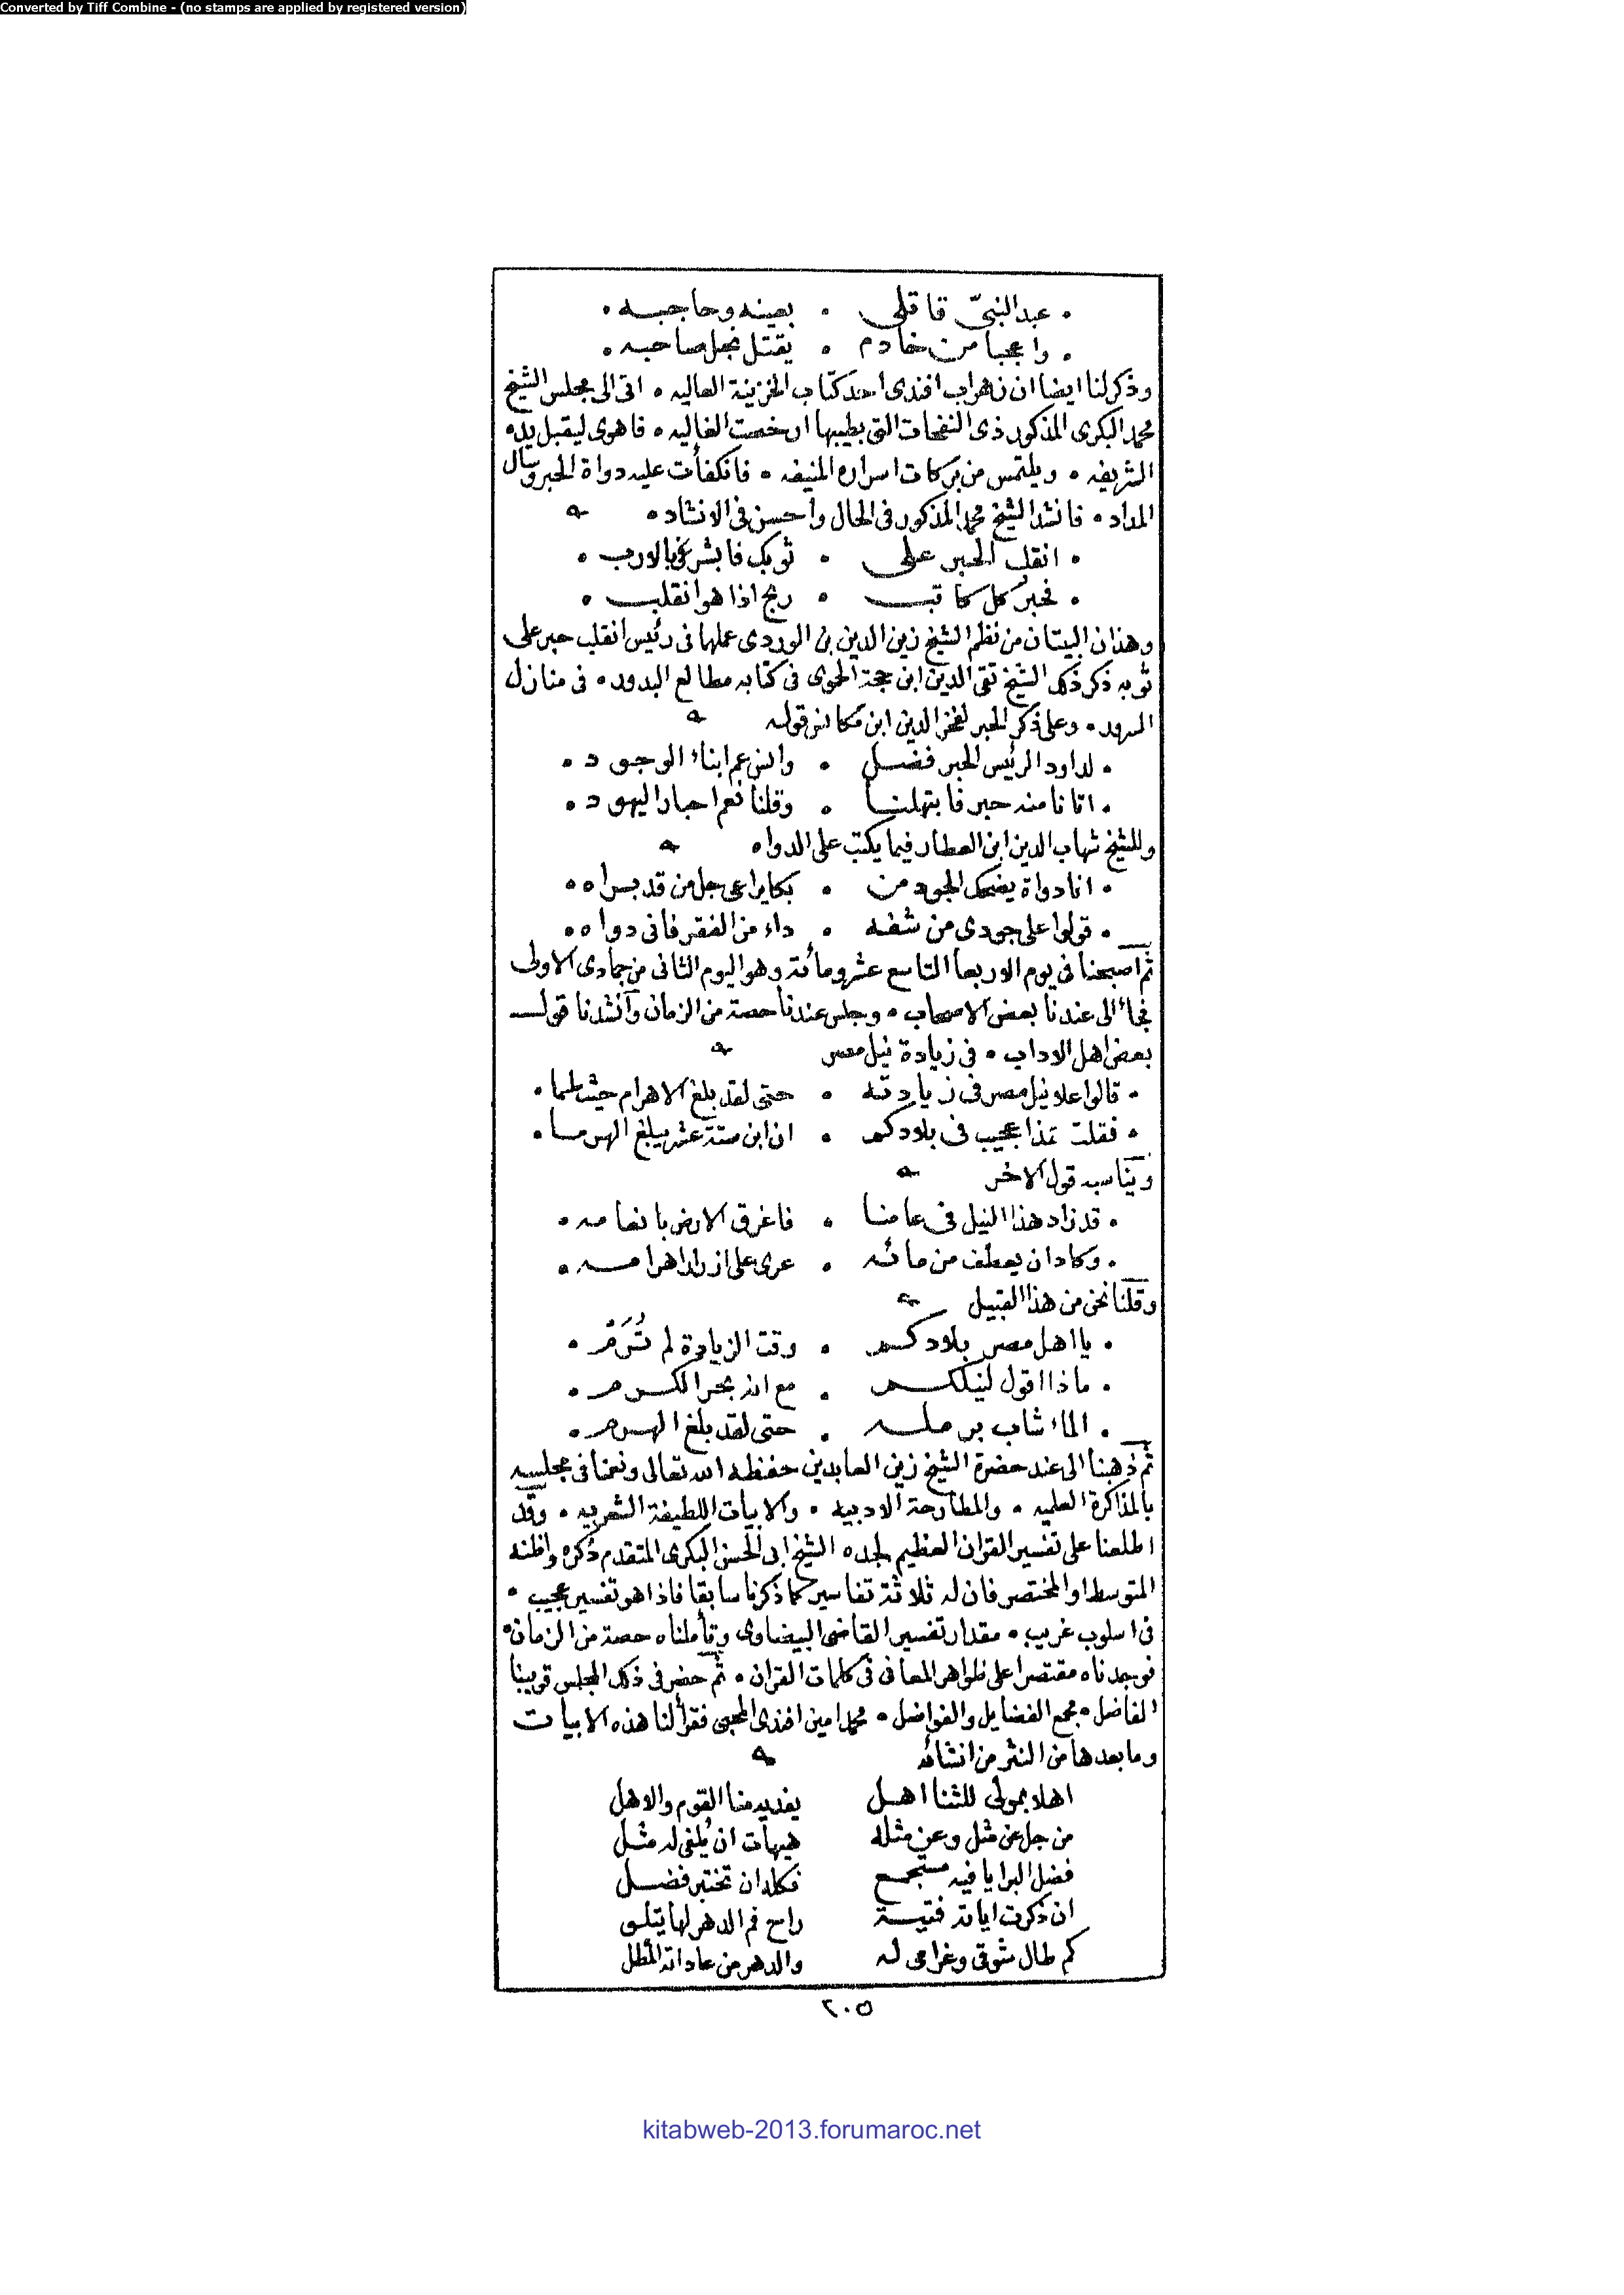 Converted by Tiff Combine - (no stamps are applied by registered version)
• عبد النبيّ قاتلي • بعينه وحاجبه •
• واعجبا من خادم • يقتل نجل صاحبه •
وذكر لنا ايضا ان زهراب افندى احد كتاب الخزينة العاليه • اتى الى مجلس الشيخ
محمد البكرى المذكور ذى النفحات التى بطيبها ارخصت الغاليه • فاهوى ليقبل يده
الشريفه • ويلتمس من بركات اسراره المنيفه • فانكفأت عليه دواة الحبر وسال
المداد • فانشد الشيخ محمد المذكور فى الحال واحسن فى الانشاد •
• انقلب الحبر على • ثوبك فابشر بالارب •
• فحبر كل كاتب • ربح اذا هو انقلب •
وهذان البيتان من نظم الشيخ زين الدين بن الوردى عملها فى رئيس انقلب حبر على
ثوبه ذكر ذلك الشيخ تقى الدين ابن حجة الحموى فى كتابه مطالع البدور • فى منازل
السرور • وعلى ذكر الحبر لفخر الدين ابن مكانس قوله
• لداود الرئيس الحبر فضل • وانس عم ابناء الوجود •
• اتانا منه حبر فابتهلنا • وقلنا نعم احبار اليهود •
وللشيخ شهاب الدين ابن العطار فيما يكتب على الدواه
• انا دواة يضحك الجود من • بكا يراعى جل من قد براه •
• قولوا على جودى من شفه • داء من الفقر فانى دواه •
ثم اصبحنا فى يوم الاربعا التاسع عشر ومائة وهو اليوم الثانى من جمادى الاولى
فجاء الى عندنا بعض الاصحاب • وجلس عندنا حصة من الزمان وانشدنا قول
بعض اهل الاداب • فى زيادة نيل مصر
• قالوا علا نيل مصر فى زيادته • حتى لقد بلغ الاهرام حيث طما •
• فقلت هذا عجيب فى بلادكم • ان ابن ستة عشر يبلغ الهرما •
ويناسبه قول الاخر
• قد زاد هذا النيل فى عامنا • فاغرق الارض بانعامه •
• وكاد ان يعطف من مائه • عرى على ازرار اهرامه •
وقلنا نحن من هذا القبيل
• يا اهل مصر بلادكم • وقت الزيادة لم تُرَمْ •
• ماذا اقول لنيلكم • مع انه بحر الكرم •
• الماء شاب برمله • حتى لقد بلغ الهرم •
ثم ذهبنا الى عند حضرة الشيخ زين العابدين حفظه الله تعالى ونعمنا فى مجلسه
بالمذاكرة العلميه • والمطارحة الادبيه • والابيات اللطيفة الشعريه • وقد
اطلعنا على تفسير القران العظيم لجده الشيخ ابى الحسن البكرى المتقدم ذكره واظنه
المتوسط او المختصر فان له ثلاثة تفاسير كما ذكرنا سابقا فاذا هو تفسير عجيب •
فى اسلوب غريب • مقدار تفسير القاضى البيضاوى وتأملناه حصة من الزمان •
فوجدناه مقتصرا على ظواهر المعانى فى كلمات القران • ثم حضر فى ذلك المجلس قريبنا
الفاضل • مجمع الفضايل والفواضل • محمد امين افندى المحبى فقرأ لنا هذه الابيات
وما بعدها من النثر من انشائه
اهلا بمولى للثنا اهل يفديه منا القوم والاهل
من جل عن مثل وعن مثله هيهات ان يُلفى له مثل
فضل البرايا فيه مستجمع فكله ان تختبر فضل
ان ذكرت اياته فتية راح فم الدهر لها يتلو
كم طال شوقى وغرامى له والدهر من عاداته المطل
٢٠٥
kitabweb-2013.forumaroc.net